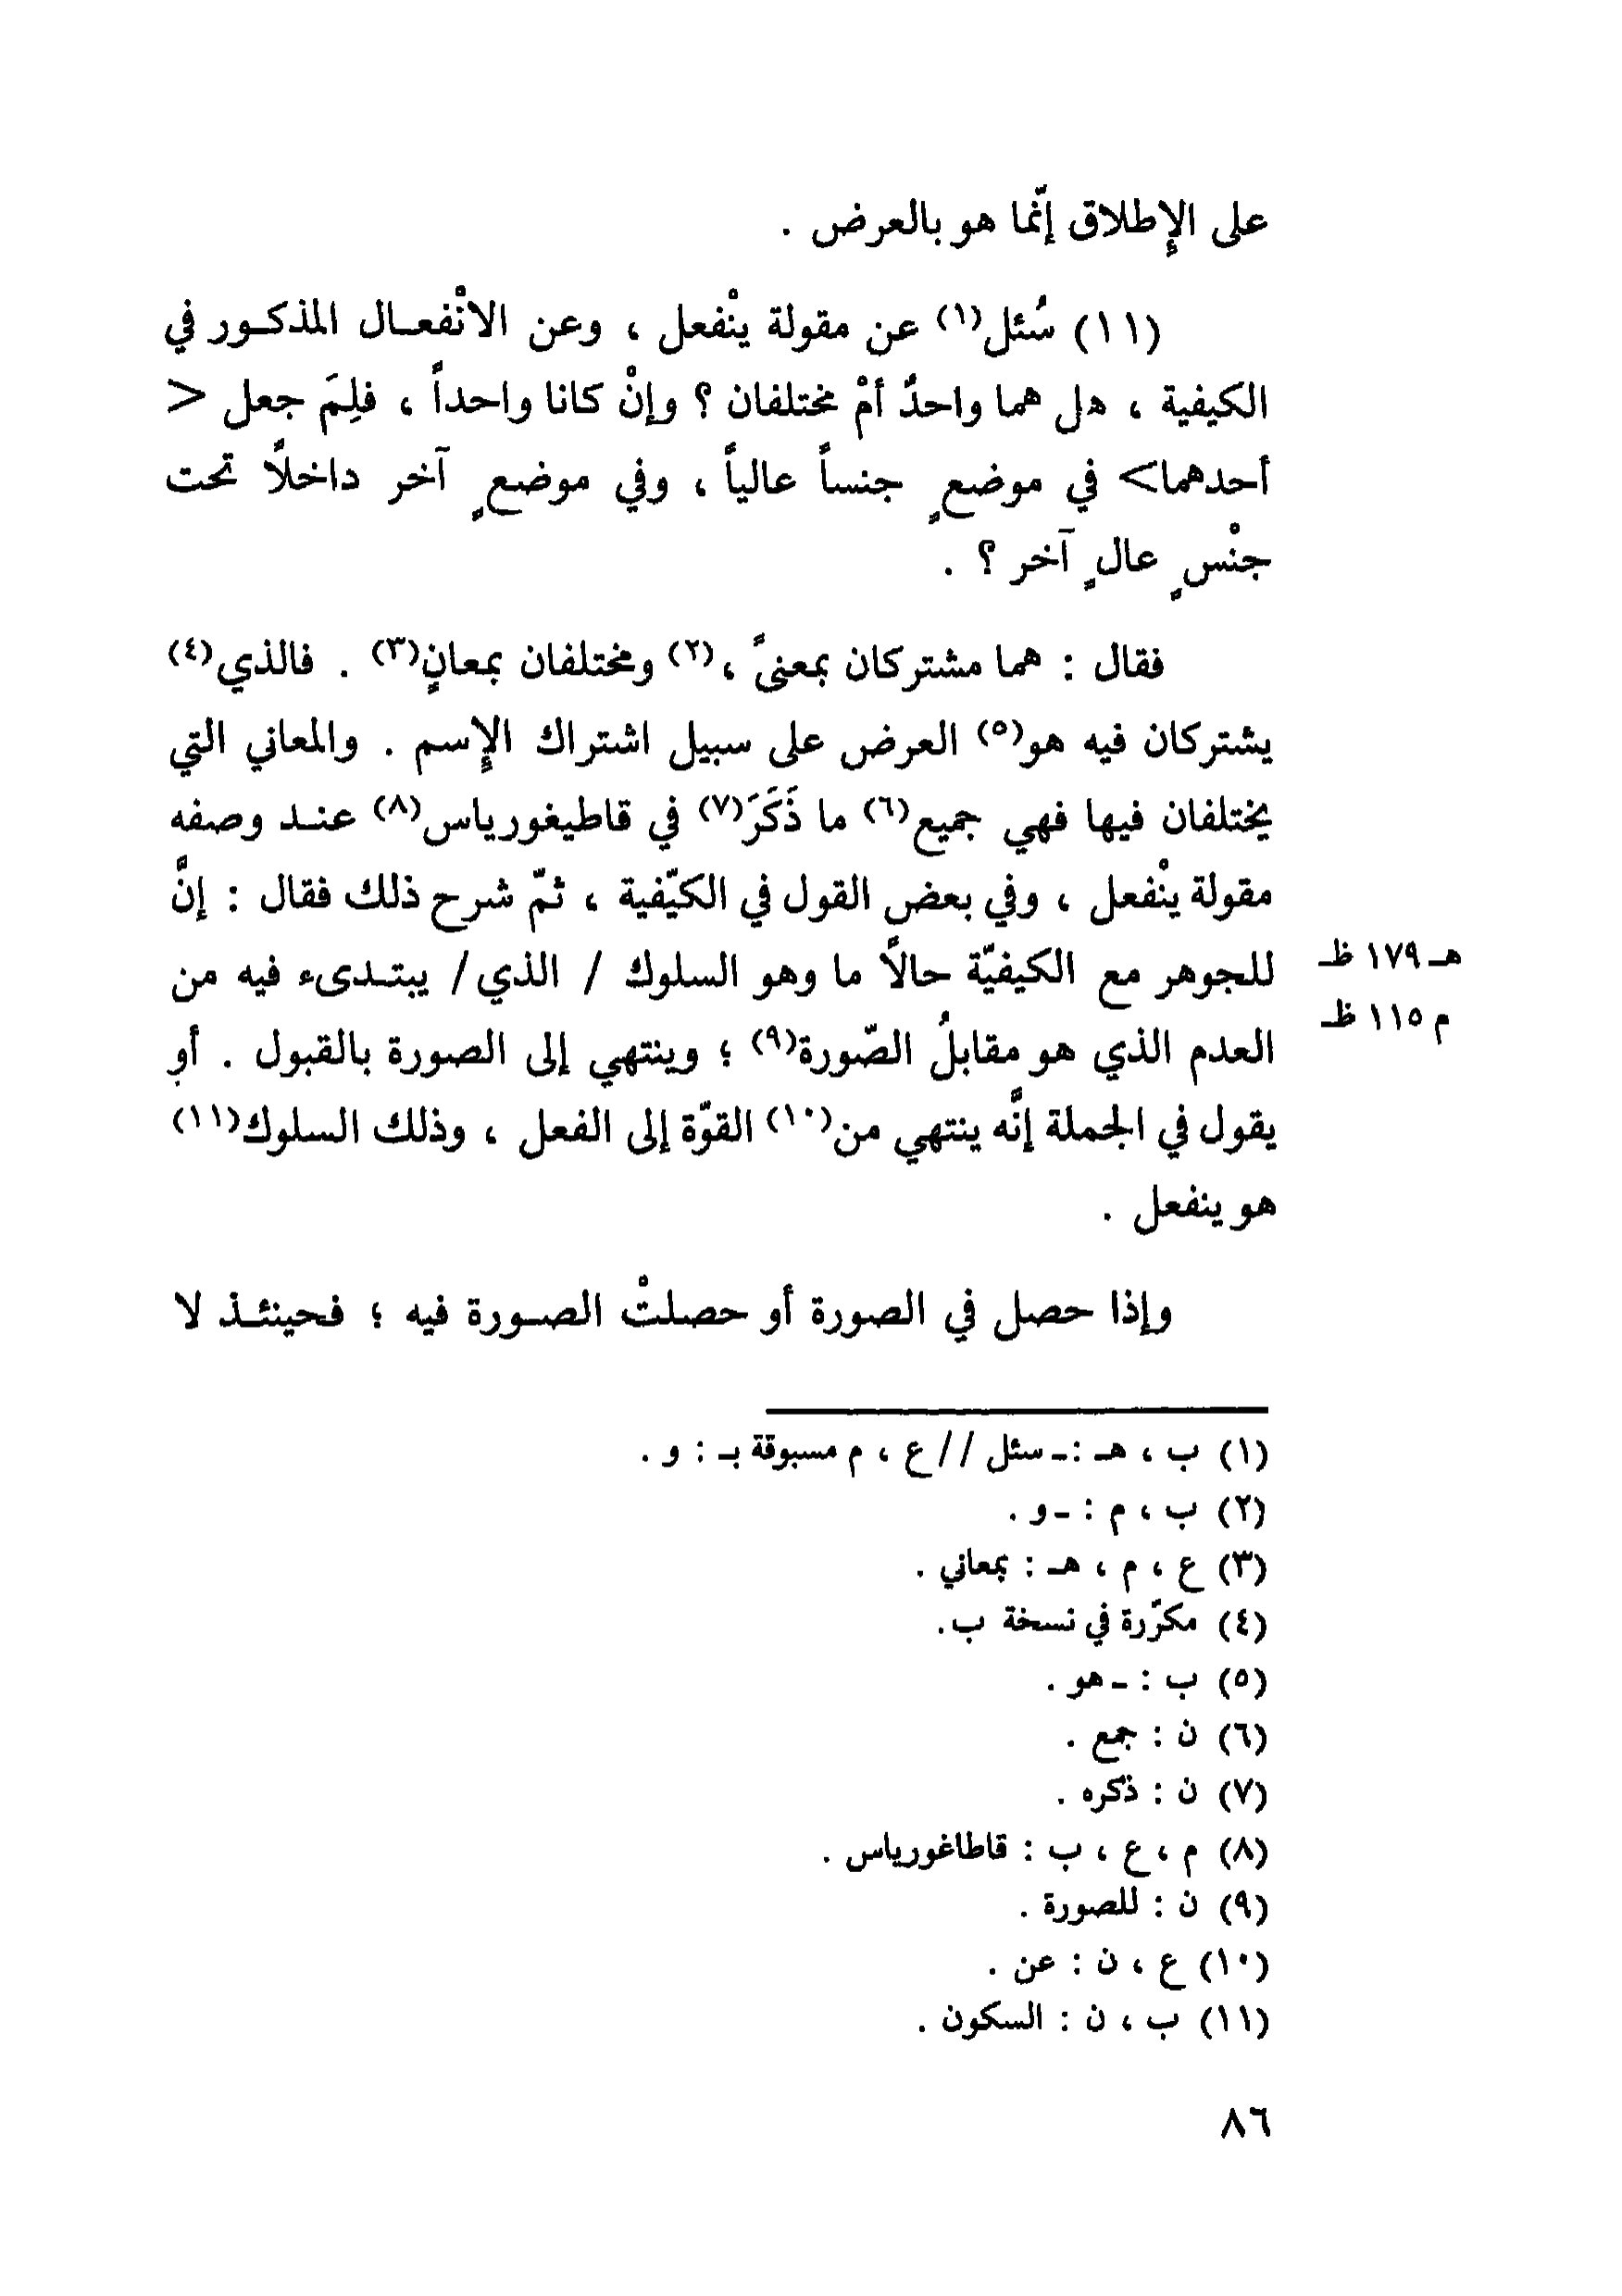 على الإِطلاق إنّما هو بالعرض .
(١١) سُئل(١) عن مقولة ينْفعل ، وعن الانْفعـال المذكـور في
الكيفية ، هل هما واحدٌ أمْ مختلفان ؟ وإنْ كانا واحداً ، فلِمَ جعل <
أحدهما> في موضعٍ جنساً عالياً ، وفي موضعٍ آخر داخلاً تحت
جنْسٍ عالٍ آخر ؟ .
فقال : هما مشتركان بمعنىً ،(٢) ومختلفان بمعانٍ(٣) . فالذي(٤)
يشتركان فيه هو(٥) العرض على سبيل اشتراك الإِسم . والمعاني التي
يختلفان فيها فهي جميع(٦) ما ذَكَرَ(٧) في قاطيغورياس(٨) عنـد وصفه
مقولة ينْفعل ، وفي بعض القول في الكيّفية ، ثمّ شرح ذلك فقال : إنَّ
للجوهر مع الكيفيّة حالاً ما وهو السلوك / الذي/ يبتـدىء فيه من
هـ ١٧٩ ظـ
العدم الذي هو مقابلُ الصّورة(٩) ؛ وينتهي إلى الصورة بالقبول . أو
م ١١٥ ظـ
يقول في الجملة إنَّه ينتهي من(١٠) القوّة إلى الفعل ، وذلك السلوك(١١)
هو ينفعل .
وإذا حصل في الصورة أو حصلتْ الصـورة فيه ؛ فحينئـذ لا
(١) ب ، هـ :ـ سئل // ع ، م مسبوقة بـ : و .
(٢) ب ، م : ـ و .
(٣) ع ، م ، هـ : بمعاني .
(٤) مكرّرة في نسخة ب.
(٥) ب : ـ هو .
(٦) ن : جمع .
(٧) ن : ذكره .
(٨) م ، ع ، ب : قاطاغورياس .
(٩) ن : للصورة .
(١٠) ع ، ن : عن .
(١١) ب ، ن : السكون .
٨٦